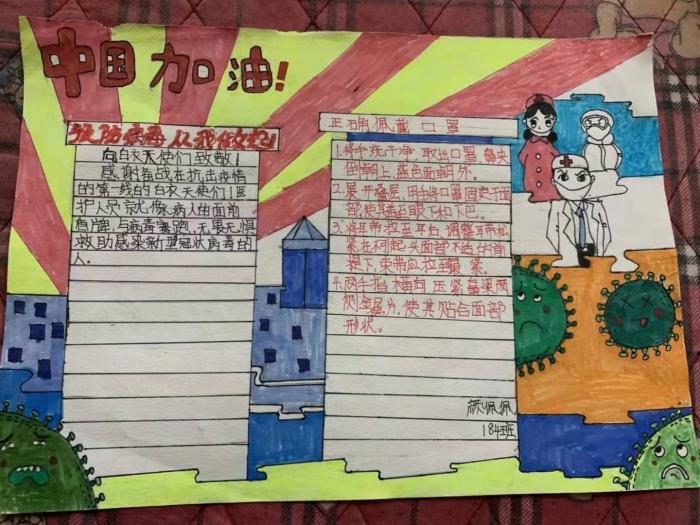 中国加油!
预防病毒从我做起
向白衣天使们致敬！
感谢奋战在抗击疫情
的第一线的白衣天使们！医
护人员就像病人生面前
盾牌,与病毒赛跑,无畏无惧
救助感染新型冠状病毒的
人。
正确佩戴口罩
1.将手洗干净,取出口罩,鼻夹
侧朝上,蓝色面朝外。
2.展开叠层,用手将口罩固定于面
部,使其盖至口鼻下和下巴。
3.将耳带拉至耳后,调整耳带松
紧在不引起头面部不适的前
提下,束带应拉至最紧。
4.两手指横向压紧鼻梁两
侧金属片,使其贴合面部
形状。
颜佩佩
184班